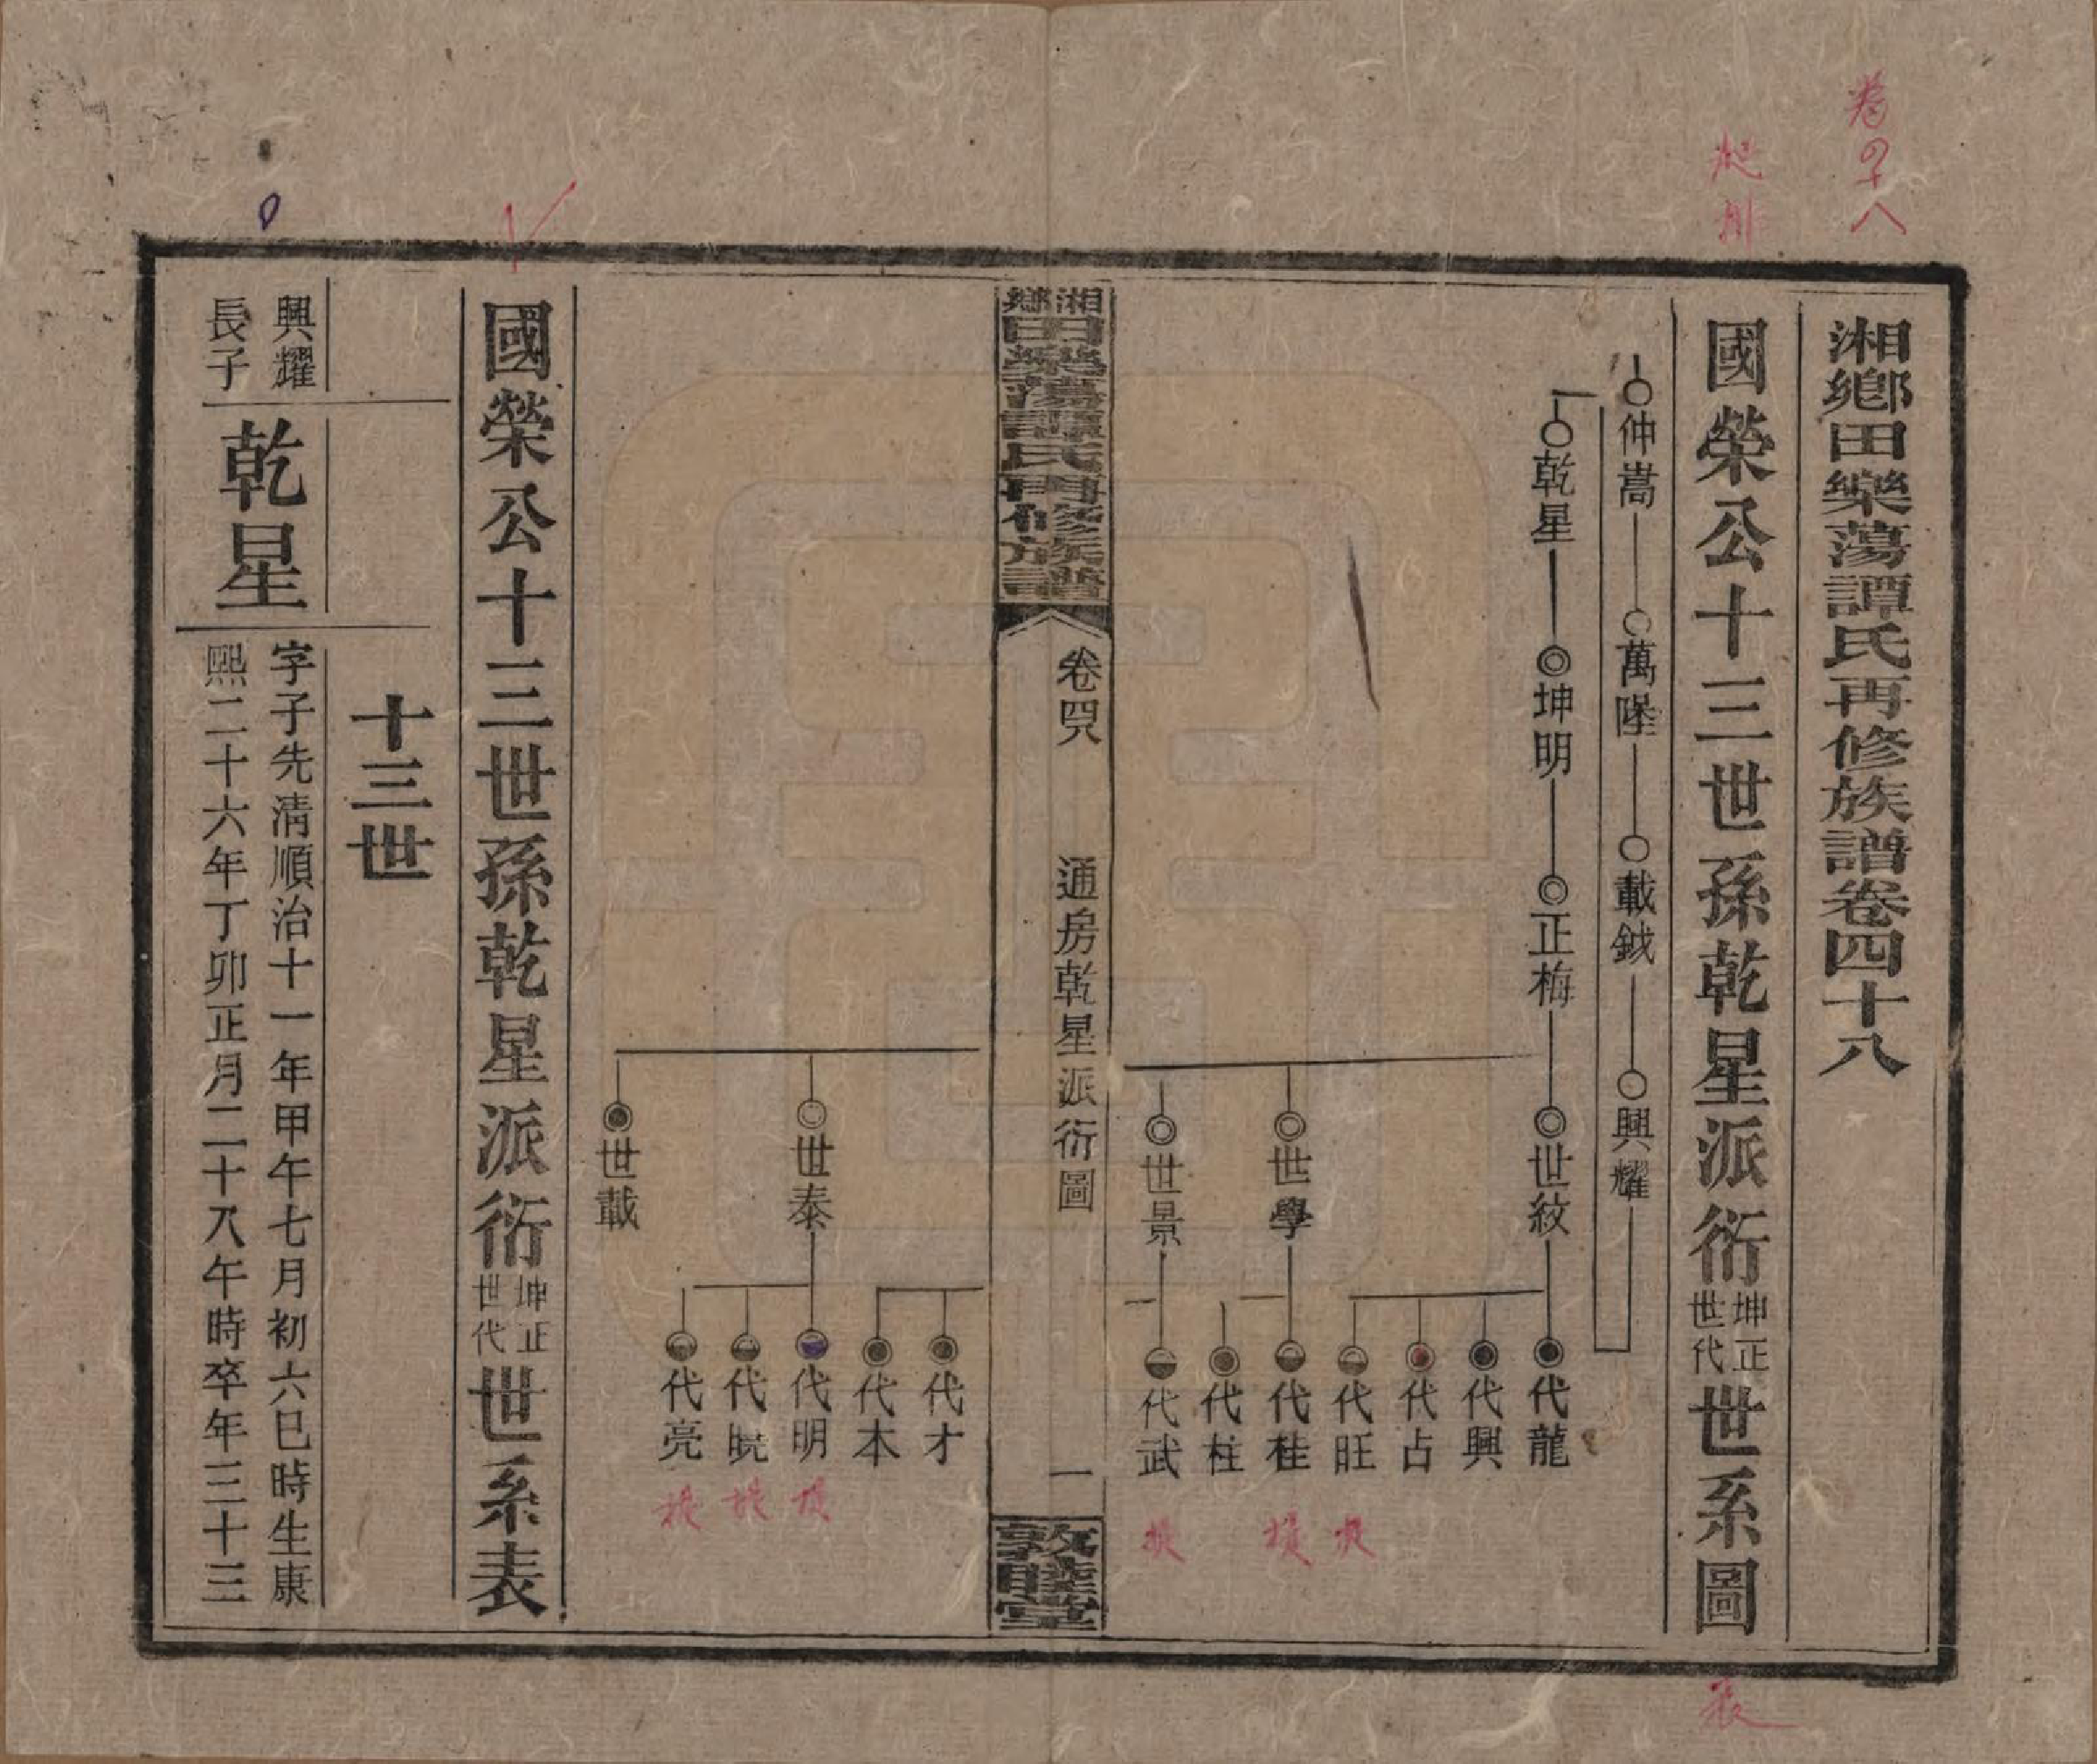 卷四十八
湘鄉田樂蕩譚氏再修族譜卷四十八
國榮公十三世孫乾星派衍坤正世代世系圖
仲嵩 萬墬 載鉞 興耀
乾星 坤明 正梅 世紋 代龍
代興
代占
代旺
世學 代桂
代柱
世景 代武
湘鄉田樂蕩譚氏再修族譜 卷四八 通房乾星派衍圖 一 敦睦堂
代才
代本
世泰 代明
代曉
代亮
世載
國榮公十三世孫乾星派衍坤正世代世系表
十三世
興耀長子
乾星
字子先清順治十一年甲午七月初六巳時生康
熙二十六年丁卯正月二十八午時卒年三十三